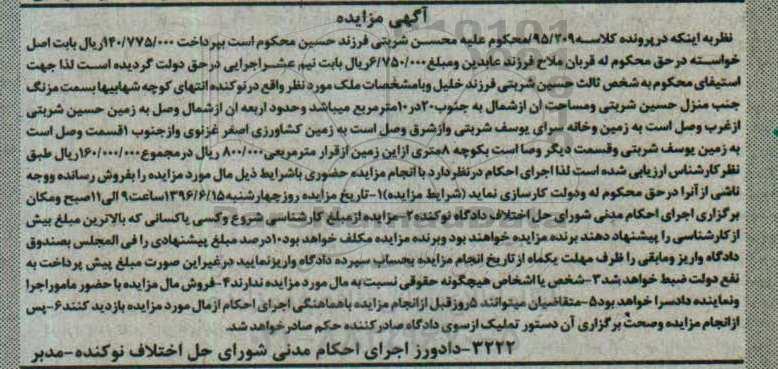 آگهی مزایده
نظربه اینکه درپرونده کلاسه۹۵/۲۰۹/محکوم علیه محسن شربتی فرزند حسین محکوم است بپرداخت ۱۴۰/۷۷۵/۰۰۰ریال بابت اصل
خواسته درحق محکوم له قربان ملاح فرزند عابدین ومبلغ۶/۷۵۰/۰۰۰ریال بابت نیم عشراجرایی درحق دولت گردیده است لذا جهت
استیفای محکوم به شخص ثالث حسین شربتی فرزند خلیل وبامشخصات ملک مورد نظر واقع درنوکنده انتهای کوچه شهابیها بسمت مزنگ
جنب منزل حسین شربتی ومساحت آن ازشمال به جنوب۲۰در۱۰مترمربع میباشد وحدود اربعه ان ازشمال وصل به زمین حسین شربتی
ازغرب وصل است به زمین وخانه سرای یوسف شربتی وازشرق وصل است به زمین کشاورزی اصغر غزنوی وازجنوب ۱قسمت وصل است
به زمین یوسف شربتی وقسمت دیگر وصا است بکوچه ۸متری ازاین زمین ازقرار مترمربعی۸۰۰/۰۰۰ ریال درمجموع۱۶۰/۰۰۰/۰۰۰ریال طبق
نظرکارشناس ارزیابی شده است لذا اجرای احکام درنظردارد با انجام مزایده حضوری باشرایط ذیل مال مورد مزایده را بفروش رسانده ووجه
ناشی از آنرا درحق محکوم له ودولت کارسازی نماید (شرایط مزایده)۱-تاریخ مزایده روزچهارشنبه۱۳۹۶/۶/۱۵ساعت۹الی۱۱صبح ومکان
برگزاری اجرای احکام مدنی شورای حل اختلاف دادگاه نوکنده۲-مزایده ازمبلغ کارشناسی شروع وکسی یاکسانی که بالاترین مبلغ بیش
از کارشناسی را پیشنهاد دهند برنده مزایده خواهند بود وبرنده مزایده مکلف خواهد بود۱۰درصد مبلغ پیشنهادی را فی المجلس بصندوق
دادگاه واریز ومابقی را ظرف مهلت یکماه ازتاریخ انجام مزایده بحساب سپرده دادگاه واریزنمایید درغیراین صورت مبلغ پیش پرداخت به
نفع دولت ضبط خواهد شد۳-شخص یا اشخاص هیچگونه حقوقی نسبت به مال مورد مزایده ندارند۴-فروش مال مزایده با حضور ماموراجرا
ونماینده دادسرا خواهد بود۵-متقاضیان میتوانند ۵روزقبل ازانجام مزایده باهماهنگی اجرای احکام ازمال مورد مزایده بازدید کنند۶-پس
ازانجام مزایده وصحت برگزاری آن دستور تملیک ازسوی دادگاه صادرکننده حکم صادرخواهد شد.
۳۲۲۲-دادورز اجرای احکام مدنی شورای حل اختلاف نوکنده-مدبر